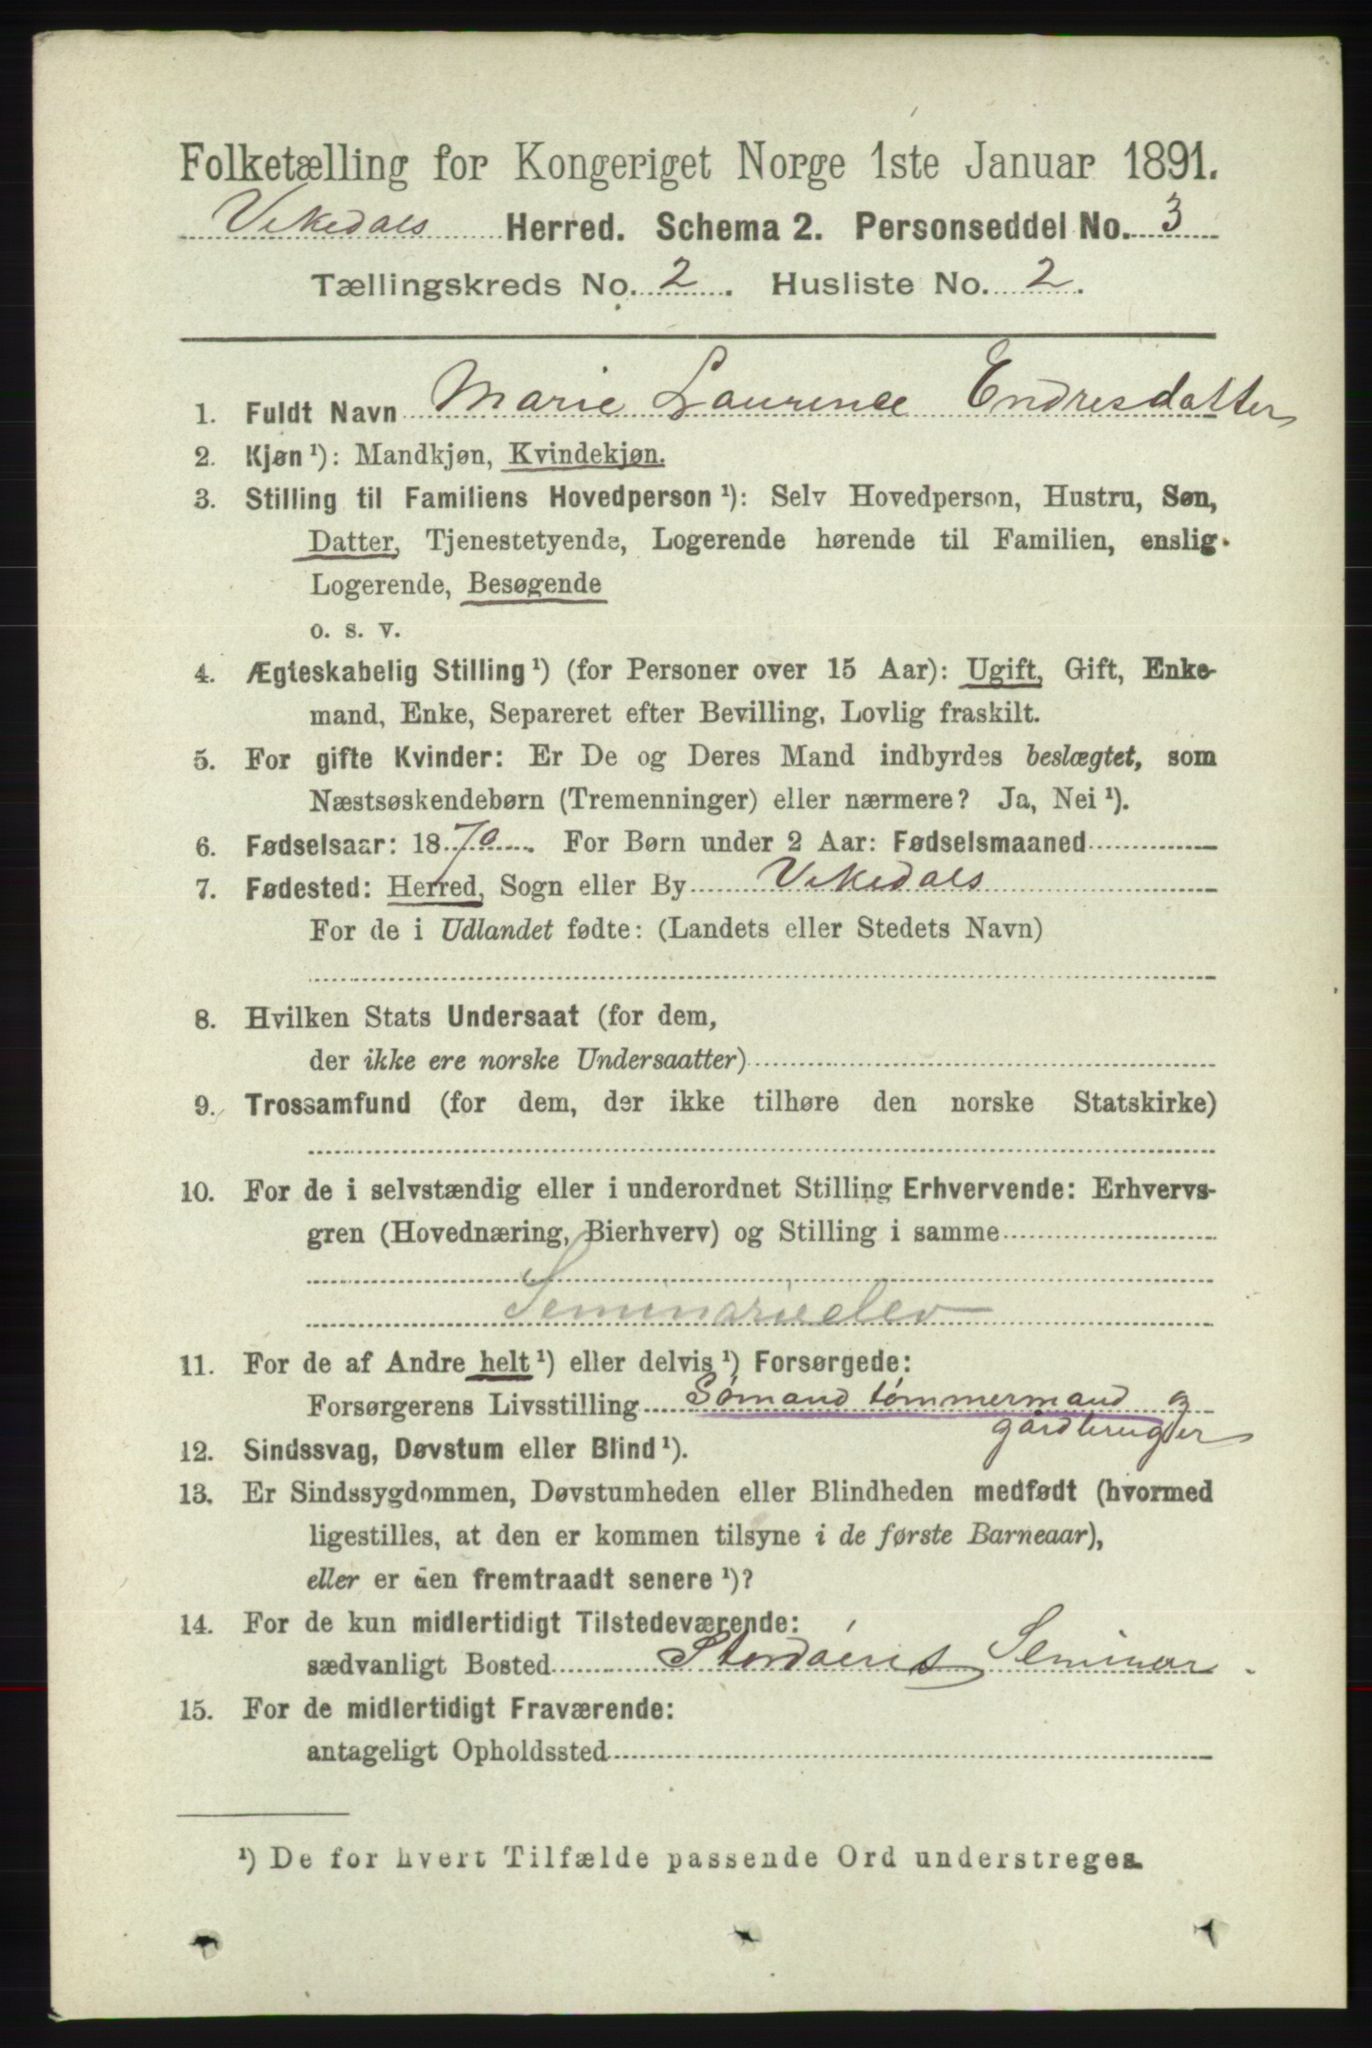 Folketælling for Kongeriget Norge 1ste Januar 1891.
Vikedals Herred. Schema 2. Personseddel No. 3
Tællingskreds No. 2. Husliste No. 2.
1. Fuldt Navn Marie Laurence Endresdatter
2. Kjøn ¹): Mandkjøn, Kvindekjøn.
3. Stilling til Familiens Hovedperson ¹): Selv Hovedperson, Hustru, Søn,
Datter, Tjenestetyende, Logerende hørende til Familien, enslig
Logerende, Besøgende
o. s. v.
4. Ægteskabelig Stilling ¹) (for Personer over 15 Aar): Ugift, Gift, Enke-
mand, Enke, Separeret efter Bevilling, Lovlig fraskilt.
5. For gifte Kvinder: Er De og Deres Mand indbyrdes beslægtet, som
Næstsøskendebørn (Tremenninger) eller nærmere? Ja, Nei ¹).
6. Fødselsaar: 1870. For Børn under 2 Aar: Fødselsmaaned
7. Fødested: Herred, Sogn eller By Vikedals
For de i Udlandet fødte: (Landets eller Stedets Navn)
8. Hvilken Stats Undersaat (for dem,
der ikke ere norske Undersaatter)
9. Trossamfund (for dem, der ikke tilhøre den norske Statskirke)
10. For de i selvstændig eller i underordnet Stilling Erhvervende: Erhvervs-
gren (Hovednæring, Bierhverv) og Stilling i samme
Seminarieelev
11. For de af Andre helt ¹) eller delvis ¹) Forsørgede:
Forsørgerens Livsstilling Sømand tømmermand og
gårdbruger
12. Sindssvag, Døvstum eller Blind ¹).
13. Er Sindssygdommen, Døvstumheden eller Blindheden medfødt (hvormed
ligestilles, at den er kommen tilsyne i de første Barneaar),
eller er den fremtraadt senere ¹)?
14. For de kun midlertidigt Tilstedeværende:
sædvanligt Bosted Stordøens Seminar.
15. For de midlertidigt Fraværende:
antageligt Opholdssted
¹) De for hvert Tilfælde passende Ord understreges.